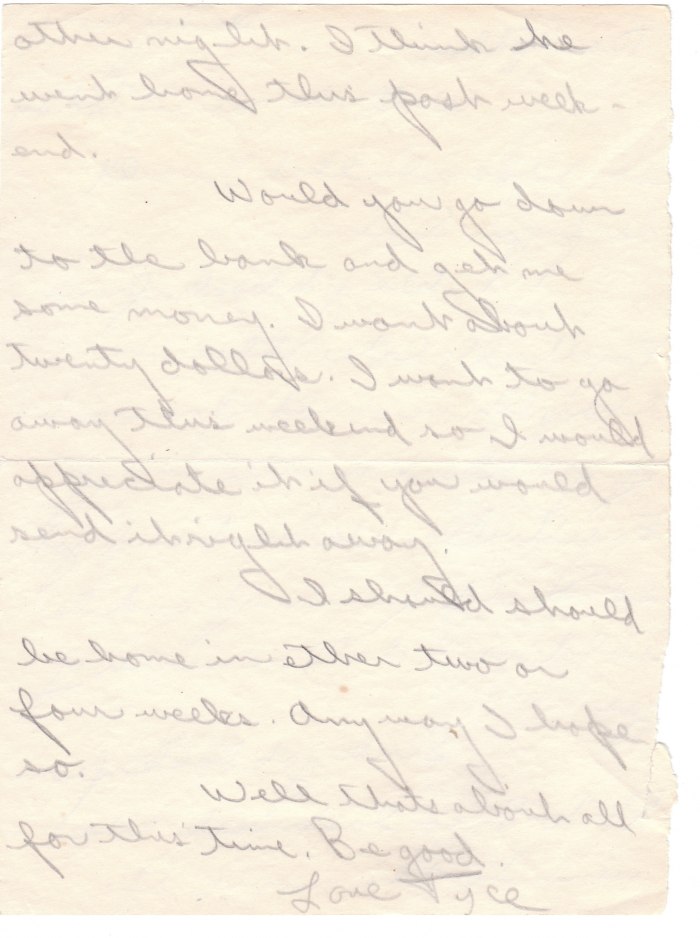 other night. I think he
went home this past week-
end.
Would you go down
to the bank and get me
some money. I want about
twenty dollars. I want to go
away this weekend so I would
appreciate it if you would
send it right away.
I should should
be home in ether two or
four weeks. Anyway I hope
so.
Well thats about all
for this time. Be good.
Love Tyce